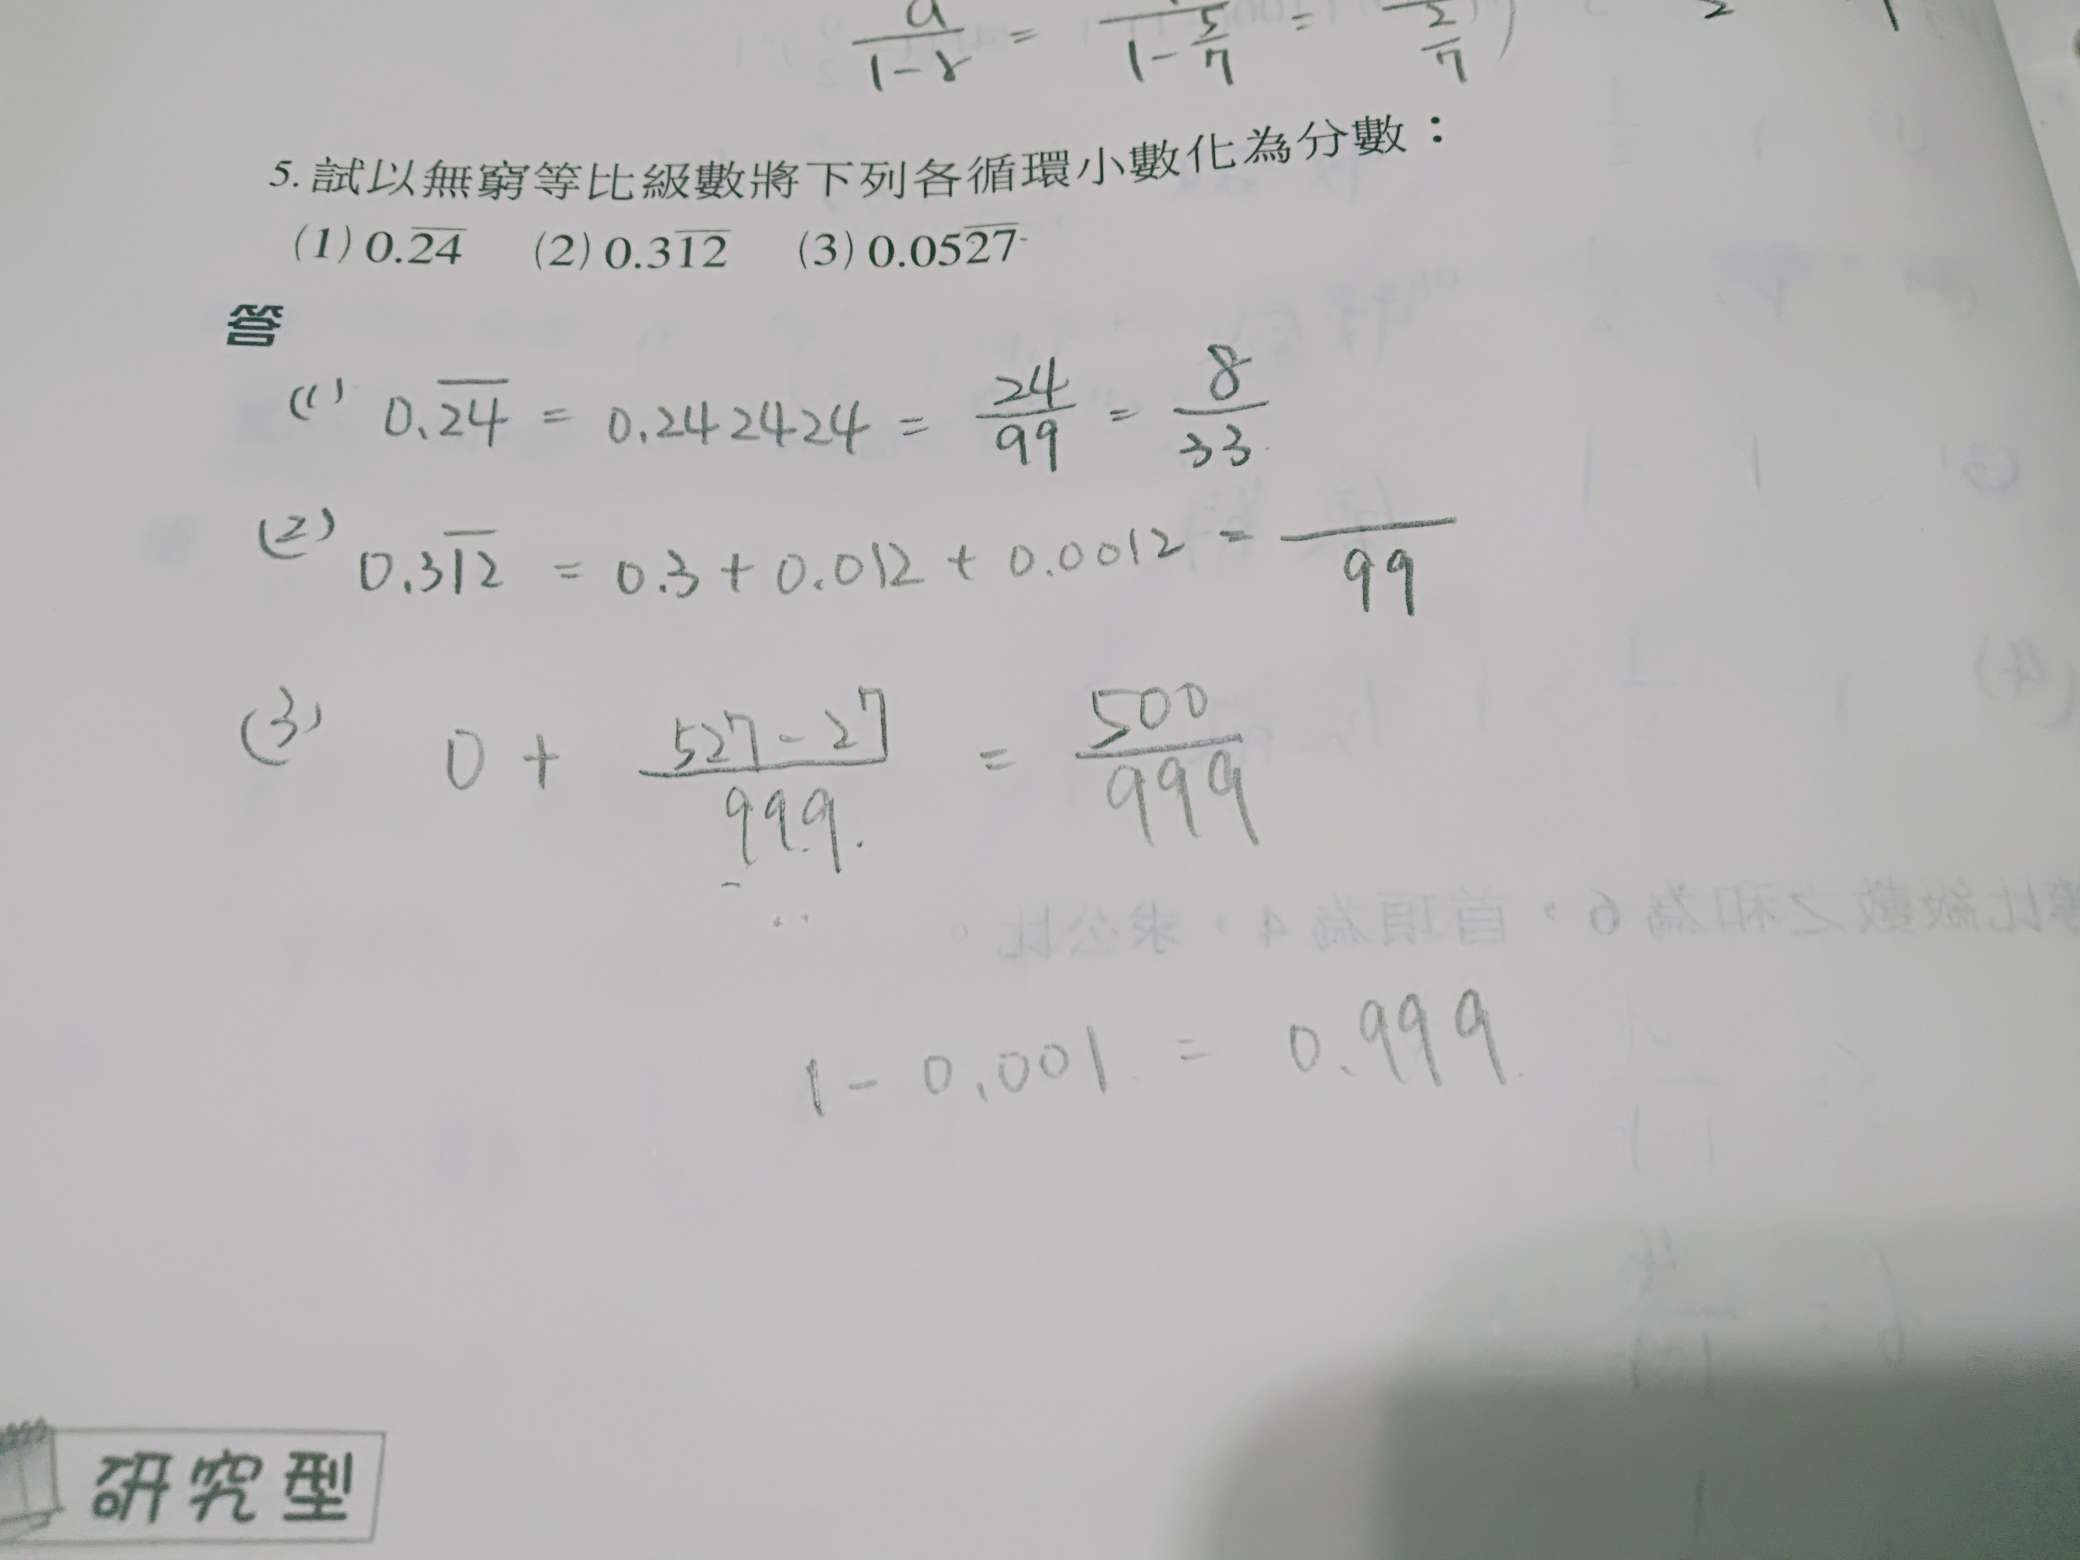 a/(1-r) = /(1-5/7) = /(2/7)
5. 試以無窮等比級數將下列各循環小數化為分數：
(1) 0.2̅4̅ (2) 0.31̅2̅ (3) 0.052̅7̅
答
(1) 0.2̅4̅ = 0.242424 = 24/99 = 8/33
(2) 0.31̅2̅ = 0.3 + 0.012 + 0.0012 = /99
(3) 0 + (527-27)/999 = 500/999
1 - 0.001 = 0.999
研究型